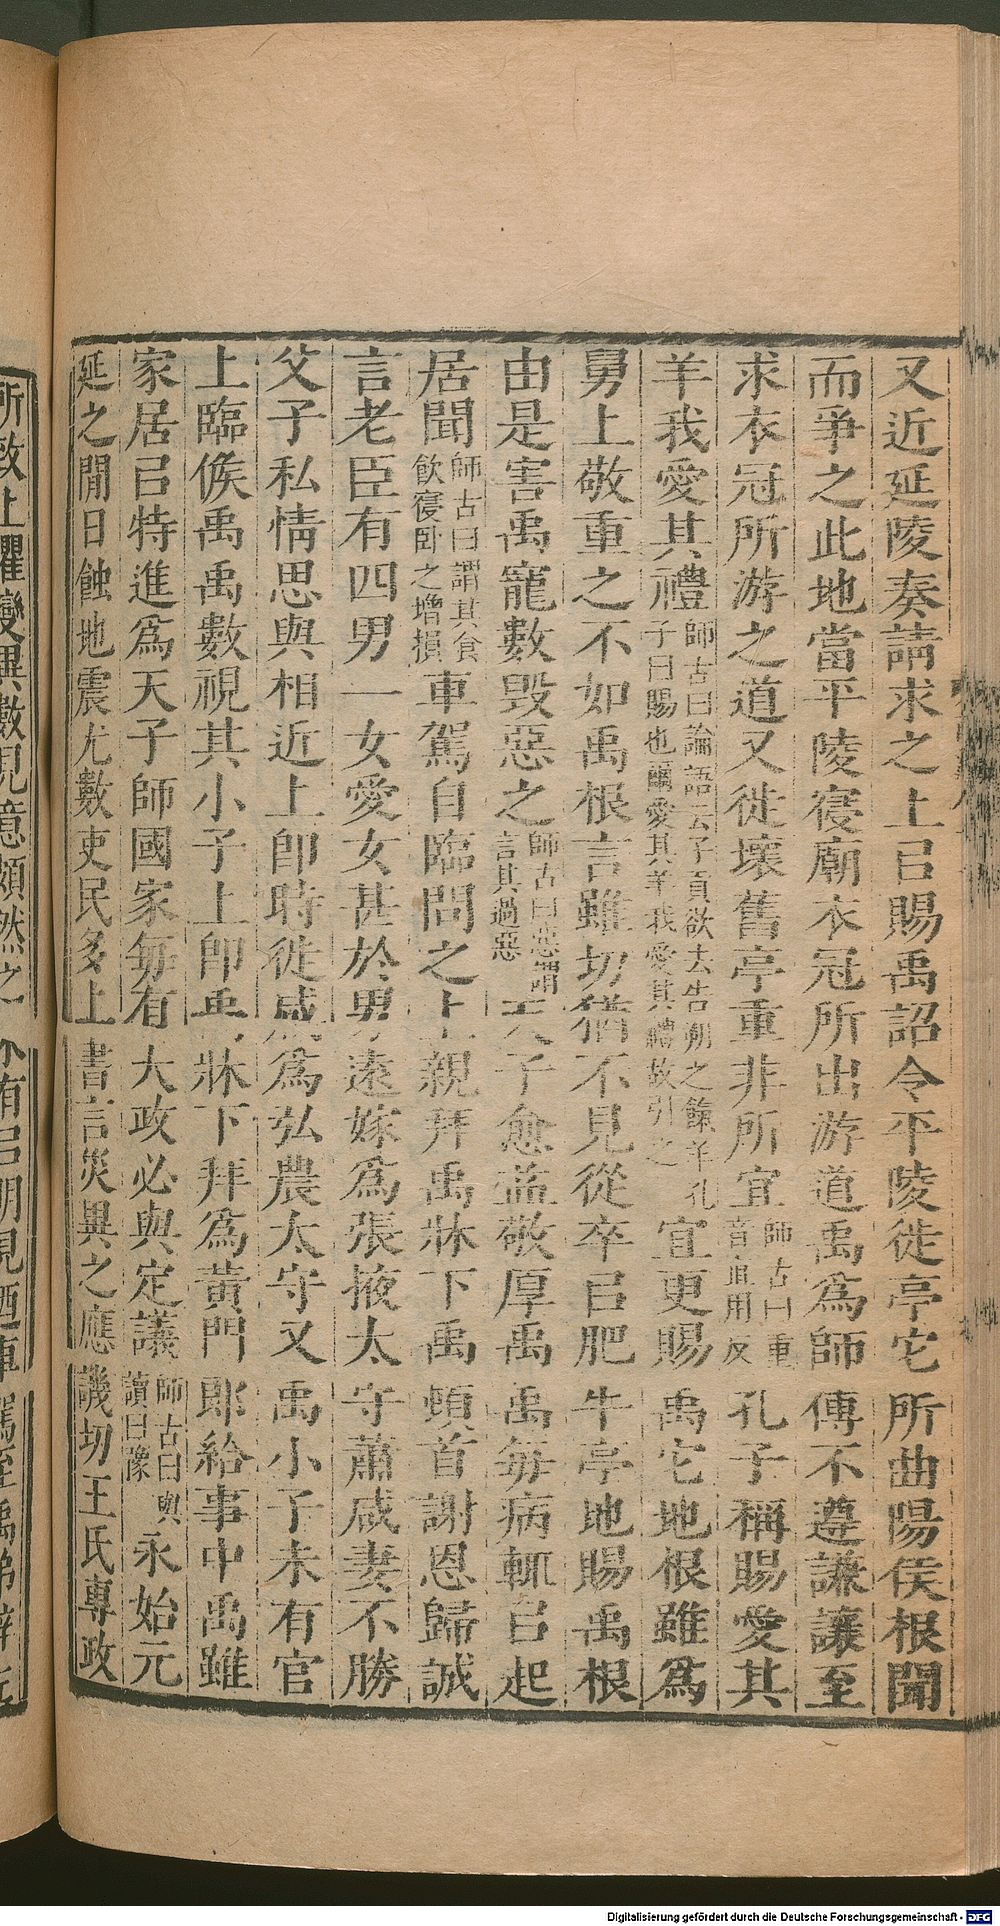 又近延陵奏請求之上㠯賜禹詔令平陵徙亭它所曲陽侯根聞
而爭之此地當平陵寑廟衣冠所出游道禹爲師傅不遵謙讓至
求衣冠所游之道又徙壞舊亭重非所宜師古曰重音直用反孔子稱賜愛其
羊我愛其禮師古曰論語云子貢欲去告朔之餼羊孔子曰賜也爾愛其羊我愛其禮故引之宜更賜禹它地根雖爲
舅上敬重之不如禹根言雖切猶不見從卒㠯肥牛亭地賜禹根
由是害禹寵數毁惡之師古曰惡謂言其過惡天子愈益敬厚禹禹每病輒㠯起
居聞師古曰謂其食飲寑卧之增損車駕自臨問之上親拜禹牀下禹頓首謝恩歸誠
言老臣有四男一女愛女甚於男遠嫁爲張掖太守蕭咸妻不勝
父子私情思與相近上卽時徙咸爲弘農太守又禹小子未有官
上臨候禹禹數視其小子上卽禹牀下拜爲黃門郎給事中禹雖
家居㠯特進爲天子師國家每有大政必與定議師古曰與讀曰豫永始元
延之閒日蝕地震尤數吏民多上書言災異之應譏切王氏專政
所致上懼變異數見意頗然之未有㠯明見迺車駕至禹弟辟左
Digitalisierung gefördert durch die Deutsche Forschungsgemeinschaft - DFG